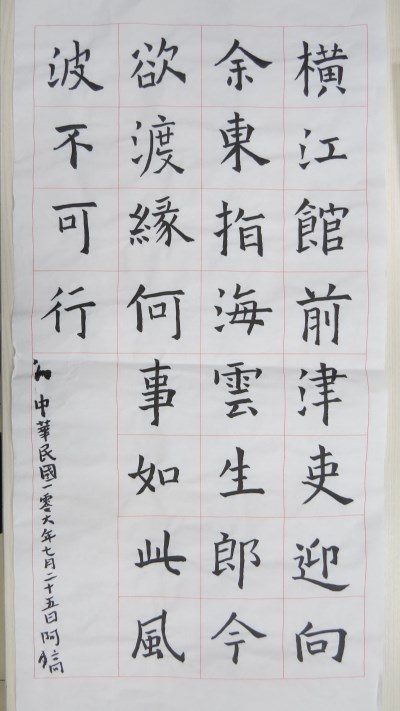 橫江館前津吏迎向
余東指海雲生郎今
欲渡緣何事如此風
波不可行
於中華民國一零六年七月二十五日阿